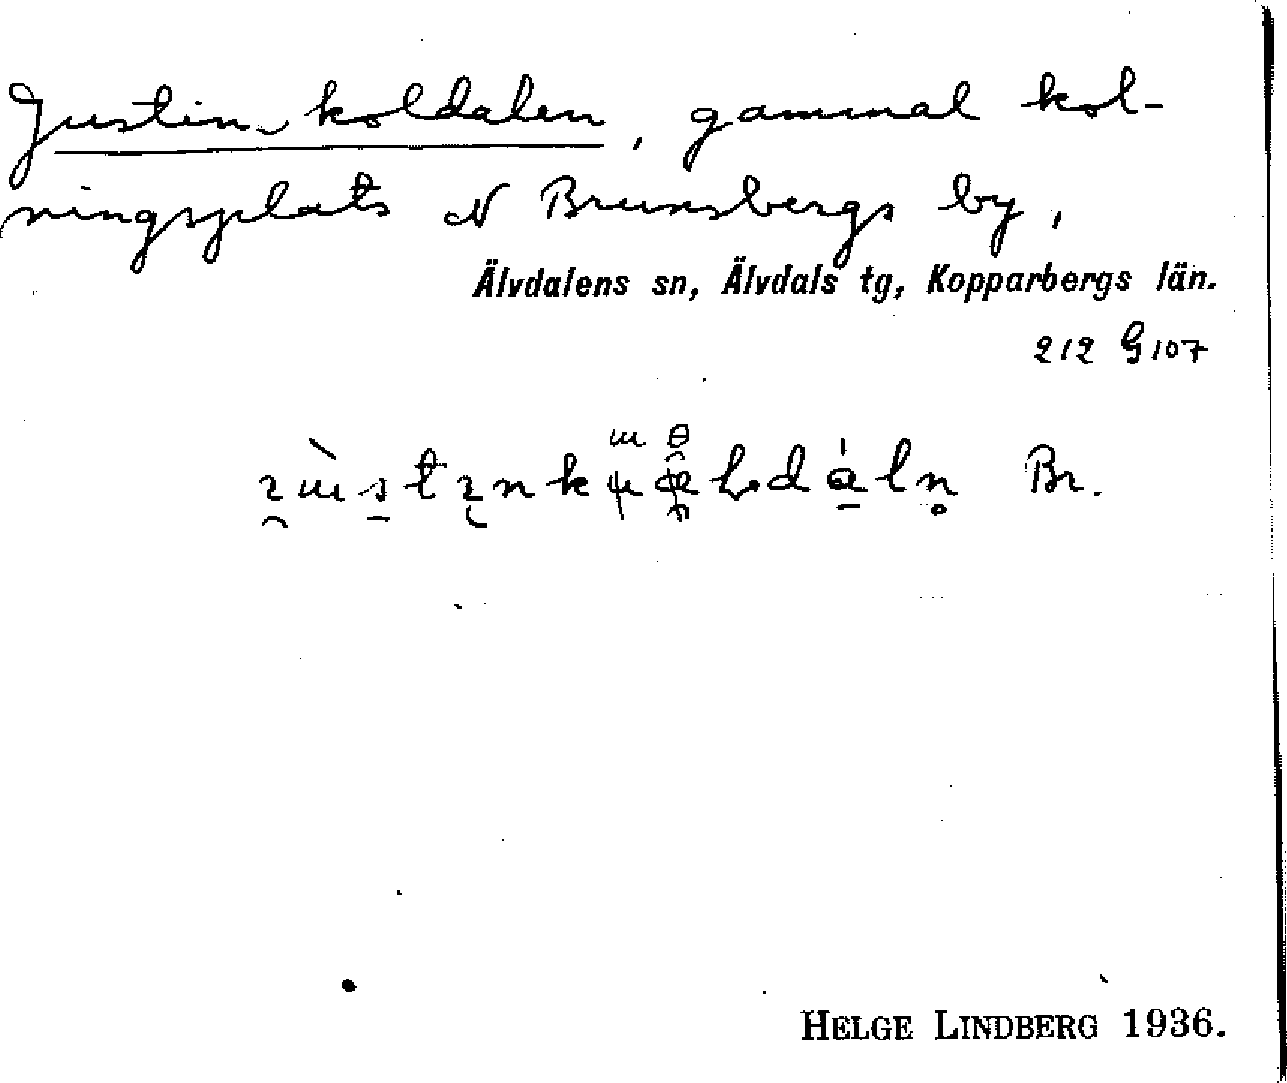 Justin-koldalen, gammal kol-
ningsplats N Brunsbergs by,
Älvdalens sn, Älvdals tg, Kopparbergs län.
212 G 107
Br.
HELGE LINDBERG 1936.